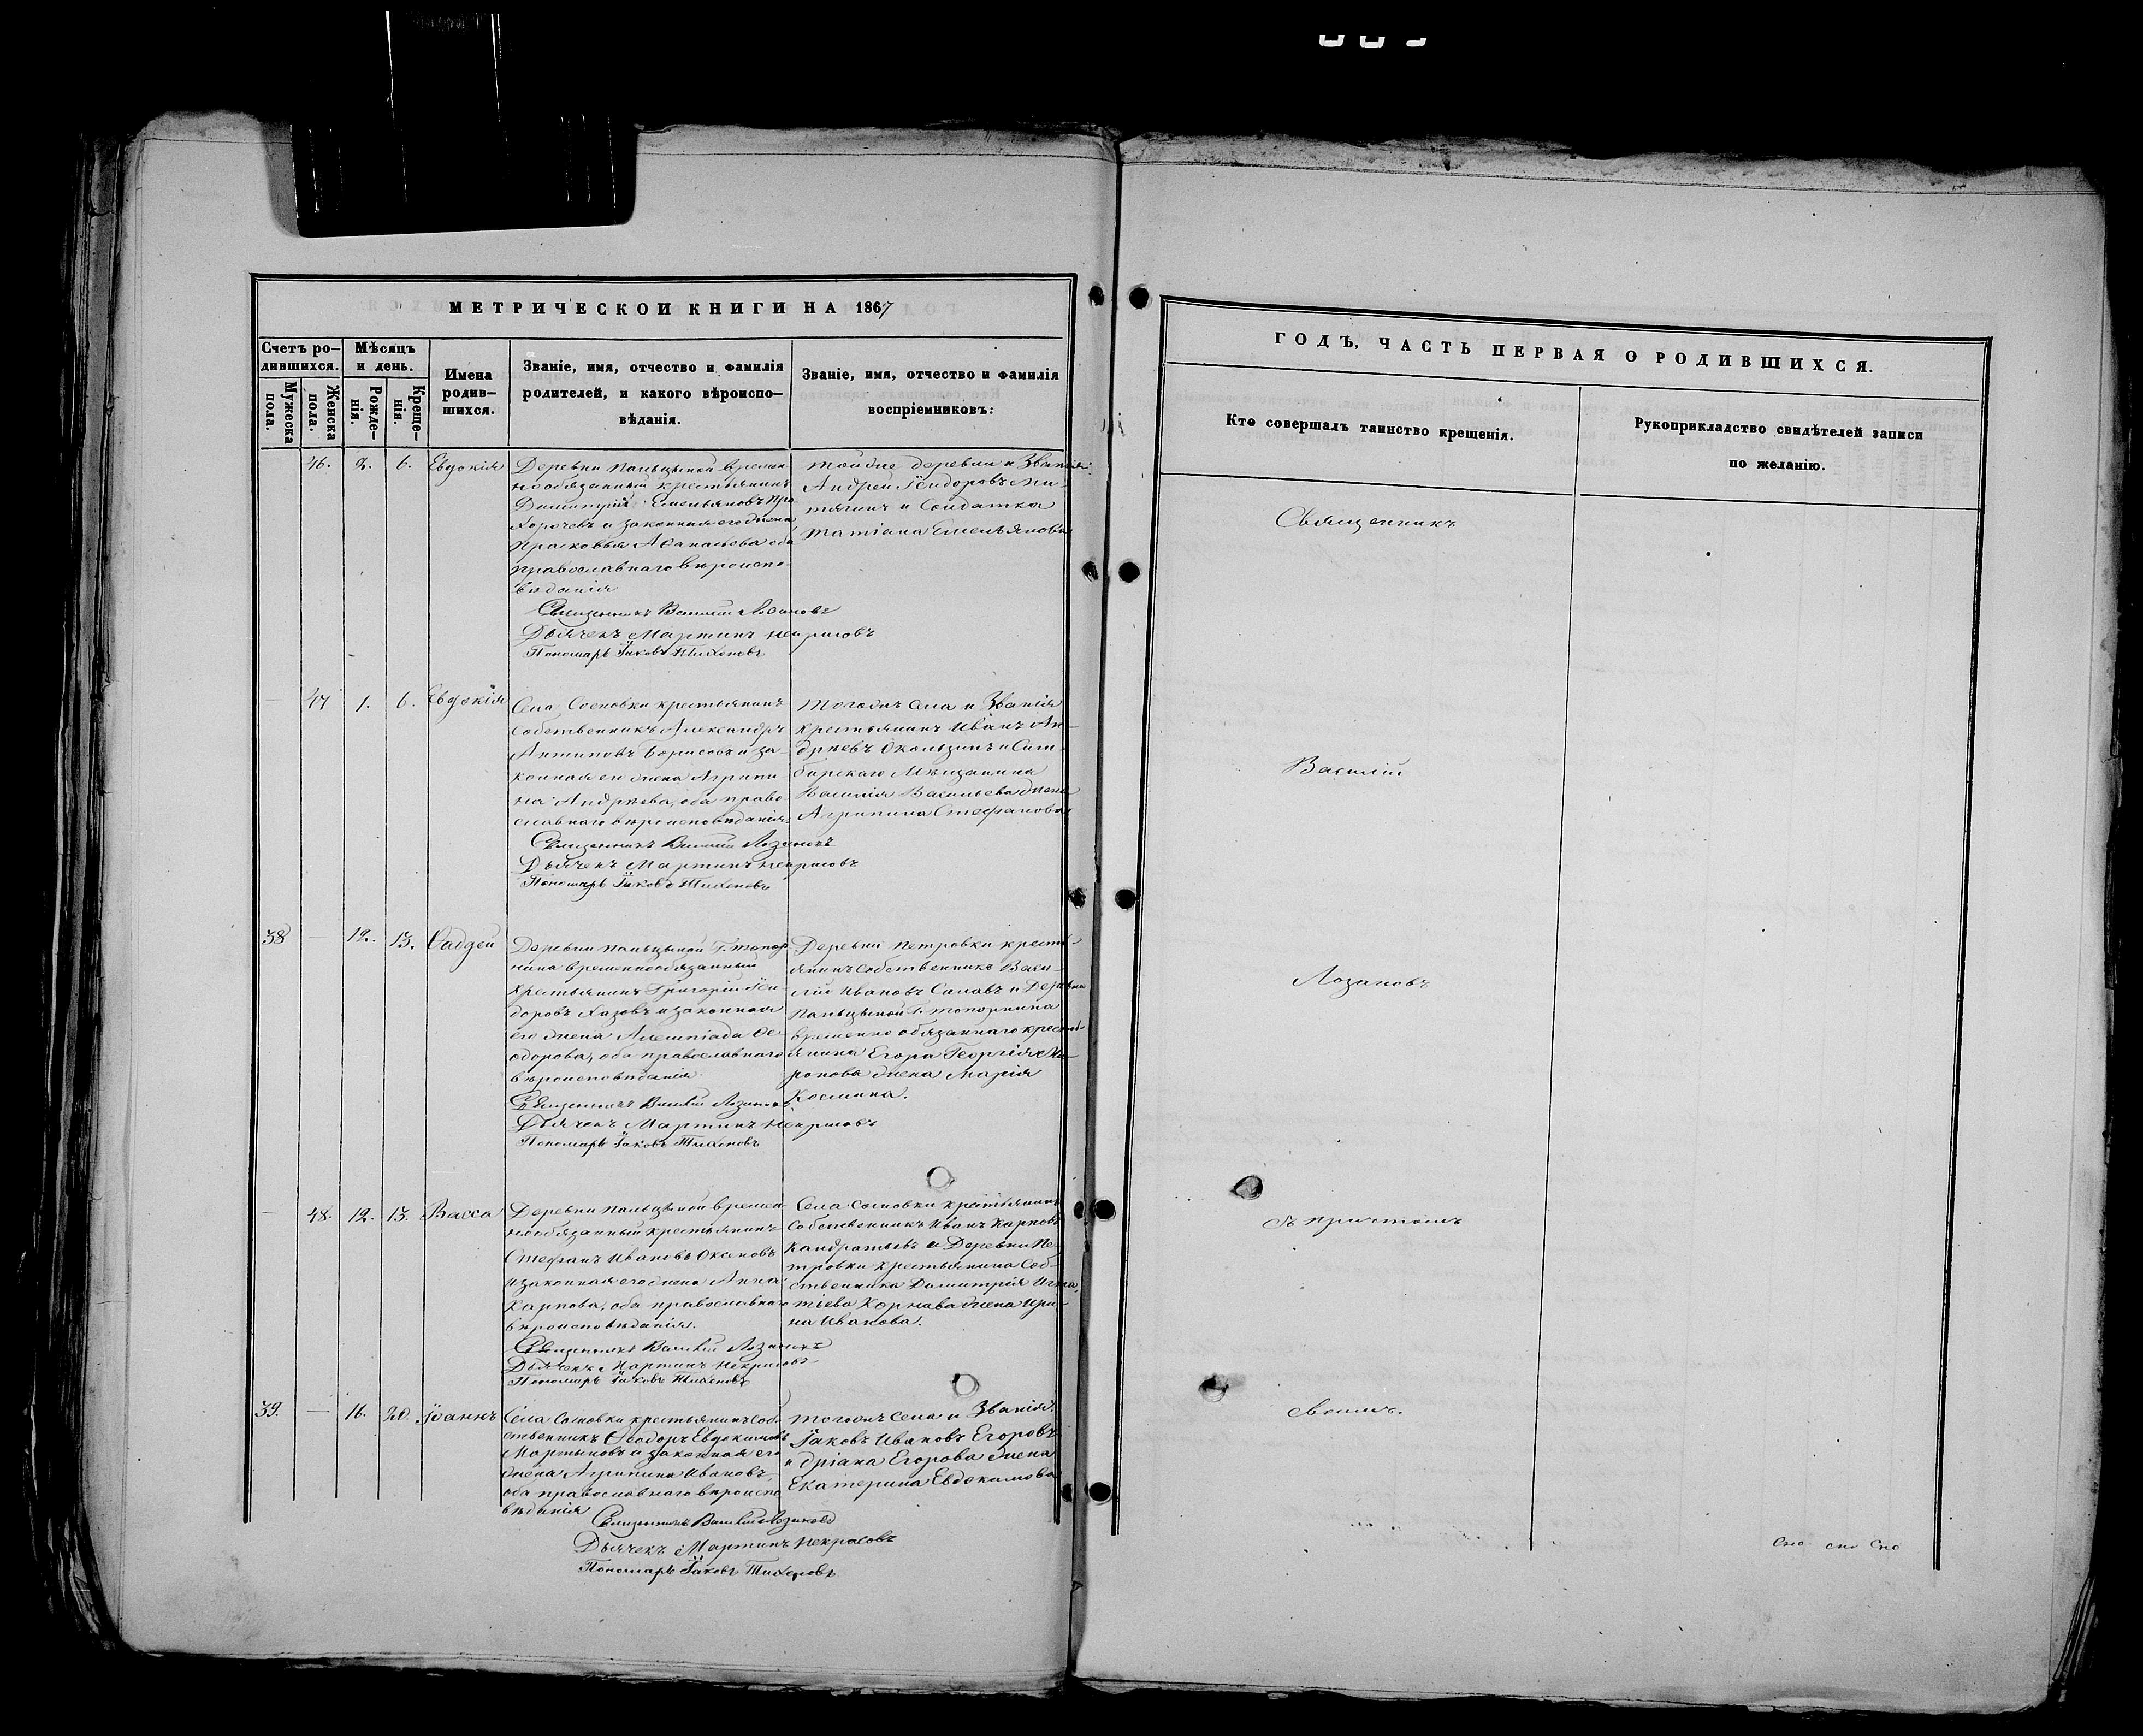 МЕТРИЧЕСКОЙ КНИГИ НА 1867
Счетъ ро-
дившихся.
Мужеска
пола.
Женска
пола.
Мѣсяцъ
и день.
Рожде-
нія.
Креще-
нія.
Имена
родив-
шихся.
Званіе, имя, отчество и фамилія
родителей, и какого вѣроиспо-
вѣданія.
Званіе, имя, отчество и фамилія
воспріемниковъ:
46. 2. 6. Евдокія
Деревни Пальцыной времен-
нообязанный крестьянинъ
Димитрій Емельяновъ Про-
хоровъ и законная его жена
Прасковья Аѳанасьева оба
православнаго вѣроиспо-
вѣданія
Священникъ Василій Лозановъ
Дьячекъ Мартинъ Некрасовъ
Пономарь Іаковъ Тихоновъ
Тойже деревни и Званія
Андрей Сидоровъ Ми-
тягинъ и Солдатка
Татіана Емельянова
47 1. 6. Евдокія
Села Сосновки крестьянинъ
собственникъ Александръ
Антиповъ Борисовъ и за-
конная его жена Агрипи-
на Андрѣева, оба право-
славнаго вѣроисповѣданія.
Священникъ Василій Лозановъ
Дьячекъ Мартинъ Некрасовъ
Пономарь Іаковъ Тихоновъ
Тогожъ Села и Званія
крестьянинъ Иванъ Ан-
дрѣевъ и Сим-
бирскаго Мѣщанина
Василія Васильева жена
Агрипина Стефанова
38 — 12. 13. Ѳаддей
Деревни Пальцыной Г. Топор-
нина временнообязанный
крестьянинъ Григорій Си-
доровъ Хазовъ и законная
его жена Алемпіада Ѳе-
одорова, оба православнаго
вѣроисповѣданія.
Священникъ Василій Лозановъ
Дьячекъ Мартинъ Некрасовъ
Пономарь Іаковъ Тихоновъ
Деревни Петровки крестъ-
янинъ собственникъ Васи-
лій Ивановъ и Деревни
Пальцыной Г. Топорнина
временно обязаннаго крестъ-
янина Егора Георгія Ми-
ронова жена Марія
Космина.
— 48. 12. 13. Васса
Деревни Пальцыной времен-
нообязанный крестьянинъ
Стефанъ Ивановъ
и законная его жена Анна
Карпова, оба православнаго
вѣроисповѣданія.
Священникъ Василій Лозановъ
Дьячекъ Мартинъ Некрасовъ
Пономарь Іаковъ Тихоновъ
Села Сосновки крестьянинъ
Собственникъ Иванъ Карповъ
Кандратьевъ и Деревни Пе-
тровки крестьянина Соб-
ственника Димитрія Игна-
тіева жена Ири-
на Иванова.
39. — 16. 20. Іоаннъ
Села Сосновки крестьянинъ соб-
ственникъ Ѳеодоръ Евдокимовъ
Мартыновъ и законная его
жена Агрипина Иванова,
оба православнаго вѣроиспо-
вѣданія
Священникъ Василій Лозановъ
Дьячекъ Мартинъ Некрасовъ
Пономарь Іаковъ Тихоновъ
Тогожъ Села и Званія
Іаковъ Ивановъ Егоровъ
Егорова жена
Екатерина Евдокимова
ГОДЪ, ЧАСТЬ ПЕРВАЯ О РОДИВШИХСЯ.
Кто совершалъ таинство крещенія.
Рукоприкладство свидѣтелей записи
по желанію.
Священникъ
Василій
Лозановъ
съ причтомъ